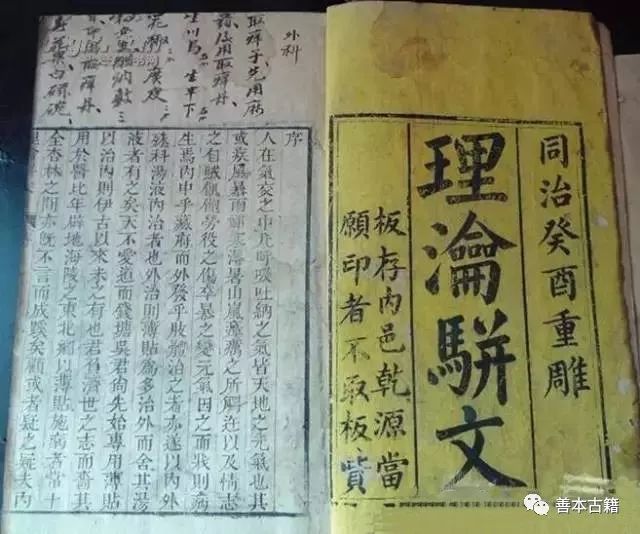 同治癸酉重雕
理瀹駢文
板存內邑乾源當
願印者不取板貲
外科
序
人在氣交之中凡呼吸吐納之氣皆天地之元氣也其
或疾風暴雨寒海暑山嵐瘴癘之所觸迕以及情志
之自賊飢飽勞役之傷卒暴之變元氣因之而戕則病
生焉內中乎臟府而外發乎肢體治之者亦遂以內外
殊科湯液內治者也外治則薄貼為多治外而舍其湯
液者有之矣天不愛道而錢塘吳君尚先始專用薄貼
以治內則伊古以來未之有也君負濟世之志而嗇其
用於醫比年辟地海陵之東北鄉以薄貼施病者當十
全杏林之間亦既不言而成蹊矣顧或者疑之疑夫內
善本古籍